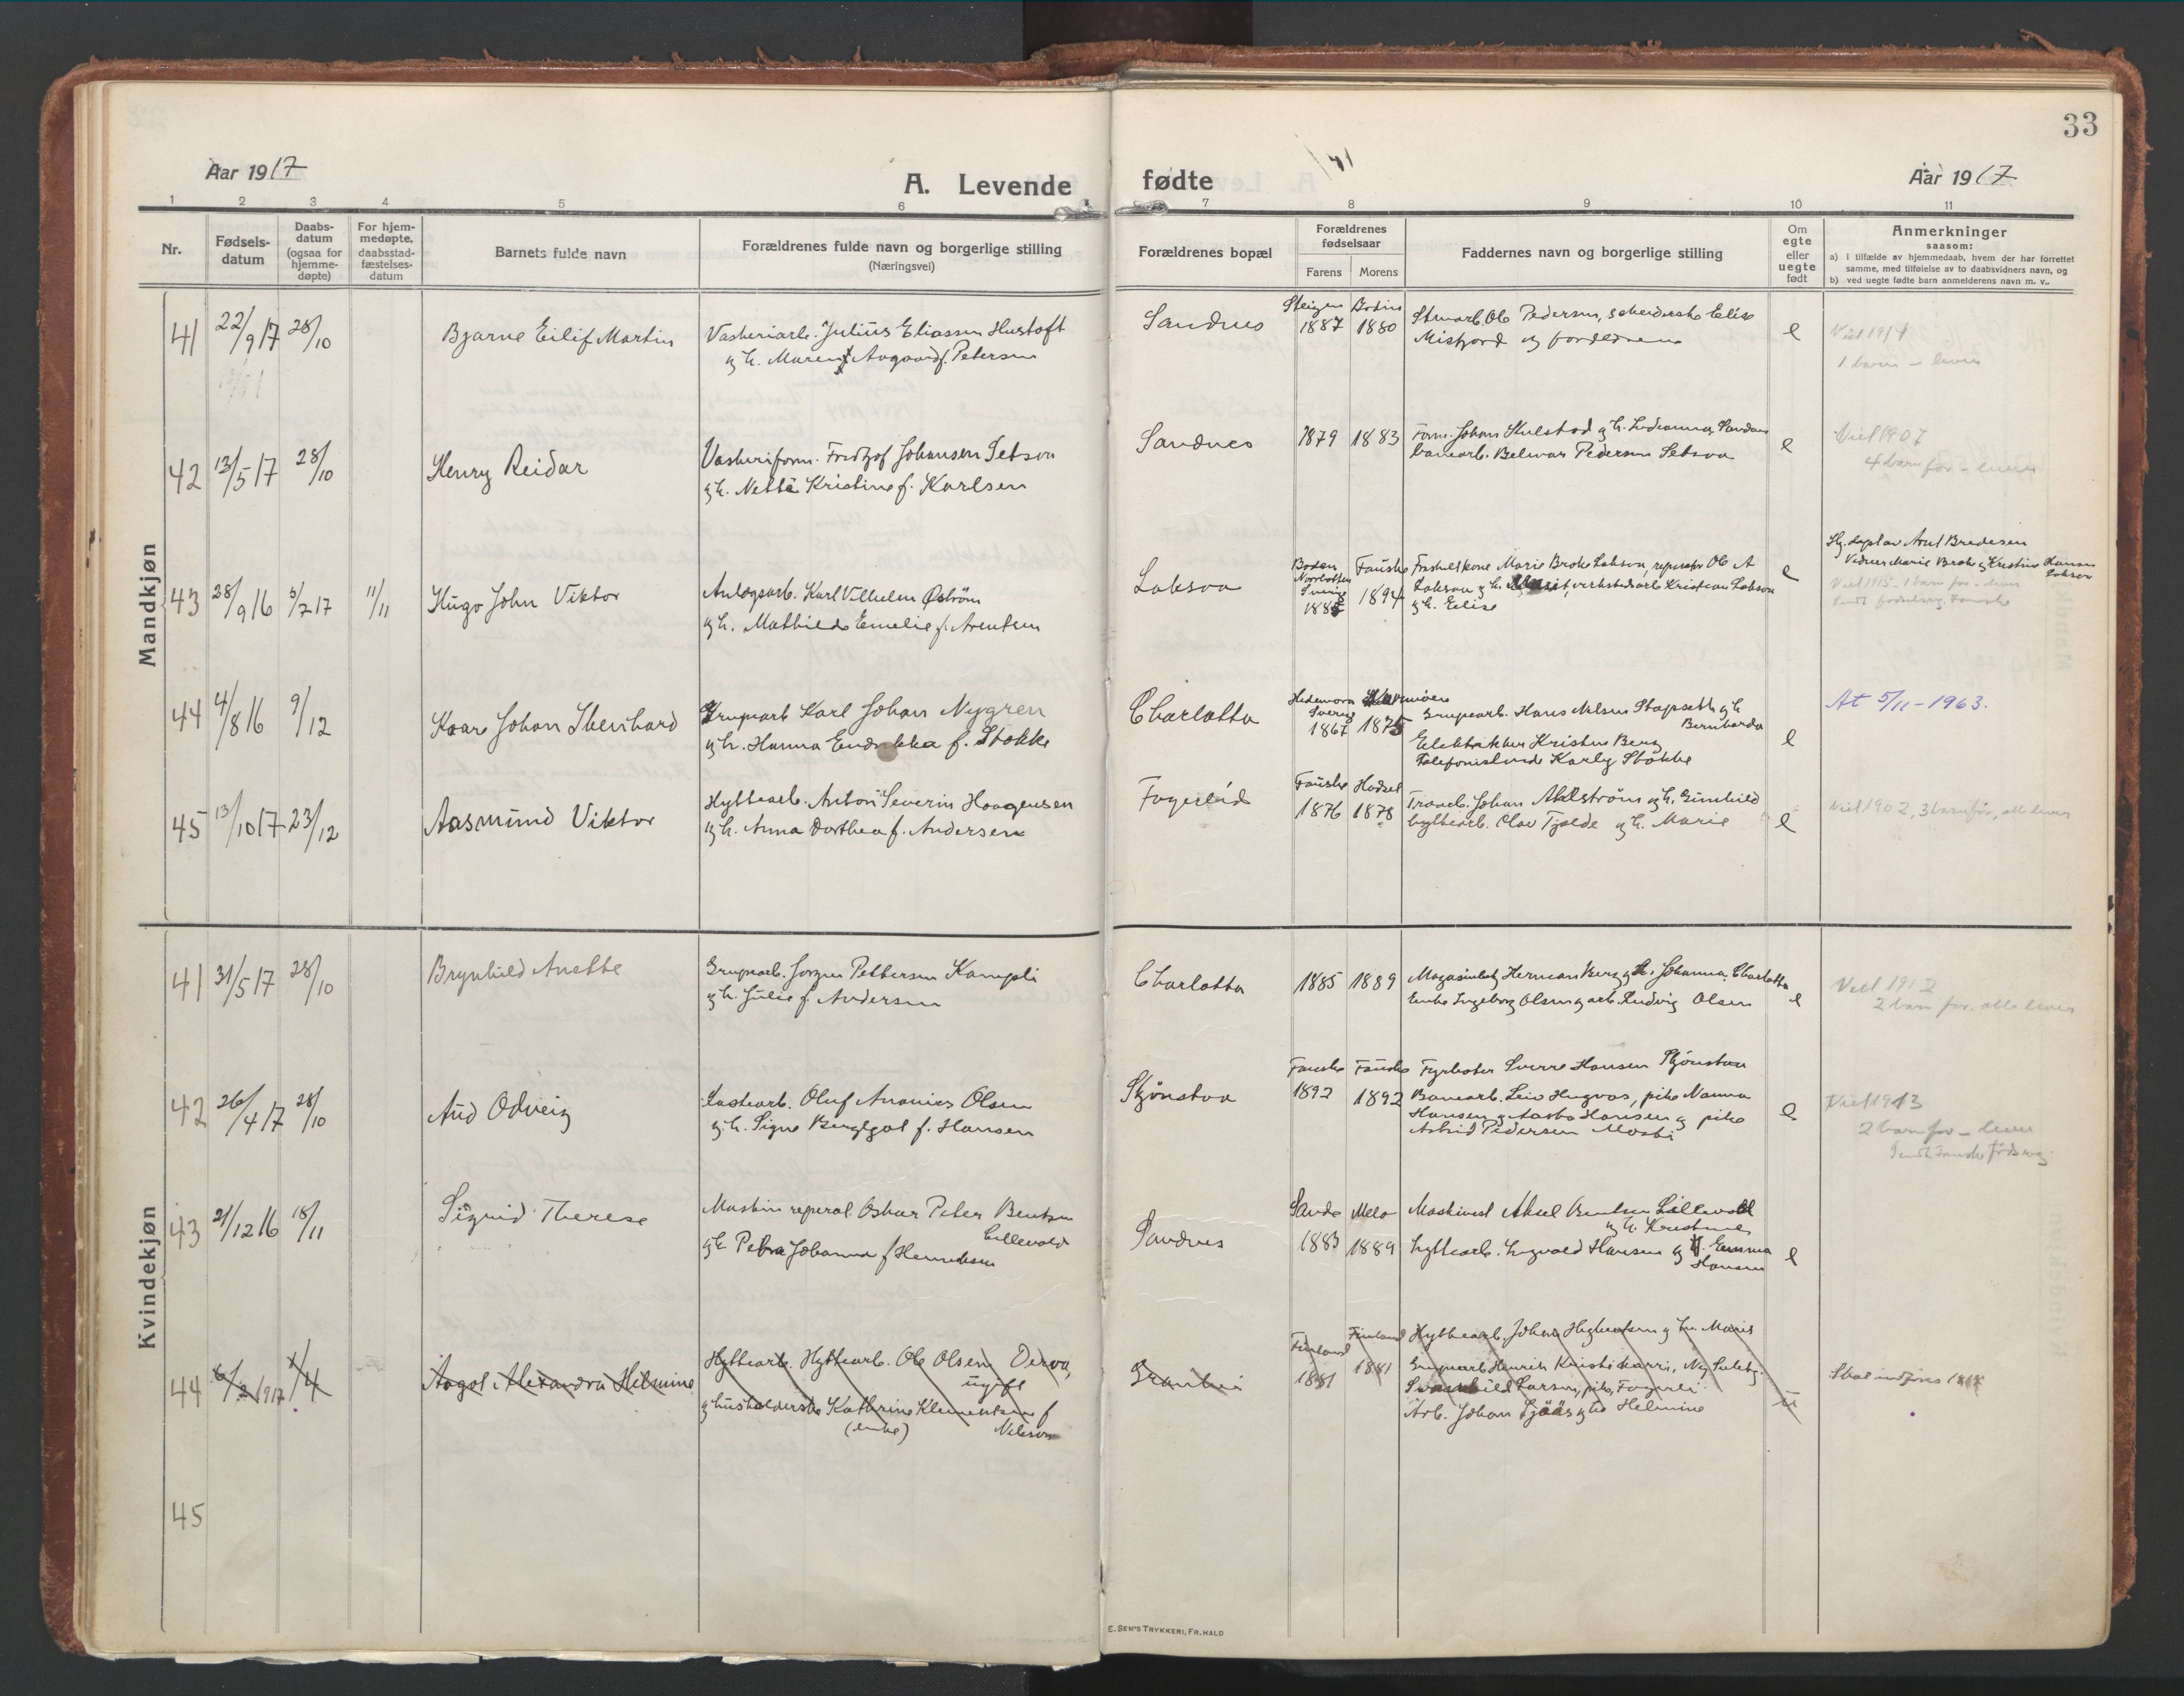 33
Aar 1917
A. Levende
fødte
Aar 1917
1 2 3 4 5 6 7 8 9 10 11
Nr.
Fødsels-
datum
Daabs-
datum
(ogsaa for
hjemme-
døpte)
For hjem-
medøpte,
daabsstad-
fæstelses-
datum
Barnets fulde navn
Forældrenes fulde navn og borgerlige stilling
(Næringsvei)
Forældrenes bopæl
Forældrenes
fødselsaar
Farens Morens
Faddernes navn og borgerlige stilling
Om
egte
eller
uegte
født
Anmerkninger
saasom:
a) i tilfælde av hjemmedaab, hvem der har forrettet
samme, med tilføielse av to daabsvidners navn, og
b) ved uegte fødte barn anmelderens navn m. v.
Mandkjøn
41 22/9 17 28/10 Bjarne Eilif Martin
Vaskeriarb. Julius Eliassen Hustoft
og h. Maren Aagaard f. Petersen
Sandnes
Steigen Bodin
1887 1880
Ole Pedersen, Elise
Misfjord og forældrene
e
Viet 1914
1 barn - lever
42 13/5 17 28/10 Henry Reidar
Vaskeriform. Fridtjof Johansen Setsva
og h. Netta Kristine f. Karlsen
Sandnes
1879 1883
Form. Johan Kulstad og h. Sandnes
banearb. Pedersen Setsva
e
Viet 1907
4 barn før - lever
43 28/9 16 5/7 17 11/11 Hugo John Viktor
Anlægsarb. Karl Vilhelm Øström
og h. Mathilde Emelie f. Arentsen
Laksaa
Boden
Norrbotten
Sverige
1885
Fauske
1894
Marie Laksaa, Ole A
Laksaa og h. verkstedsarb. Kristian Laksaa
og h. Elise
e
Hj. døpt av Arnt Bredesen
Vidner Marie og Kristine Hansen
Laksaa
Viet 1915. 1 barn før - lever
44 4/8 16 9/12 Kaare Johan Iberhard
Grupearb Karl Johan Nygren
og h. Hanna Endrikka f. Stokke
Charlotta
Hedemora
Sverige
1867 1875
Grupearb. Hans Nilsen Stapseth og h.
Bernharda
Elektriker Kristen Berg
Telefonistinde Karly Stokke
e
At 5/11 - 1963.
45 13/10 17 23/12 Aasmund Viktor
Hyttearb. Anton Severin Haagensen
og h. Anna Dorthea f. Andersen
Fagerlid
Fauske Hadsel
1876 1878
Johan Ahlström og h. Gunhild
hyttearb. Olav Tjelde og h. Marie
e
Viet 1902, 3 barn før, alle lever
Kvindekjøn
41 31/5 17 28/10 Brynhild Anette
Grupearb. Jørgen Pettersen Kampli
og h. Julie f. Andersen
Charlotta
1885 1889
Herman Berg og h. Johanna, Charlotta
Enke Ingeborg Olsen og arb. Ludvig Olsen
e
Viet 1912
2 barn før, alle lever
42 26/4 17 28/10 Aud Odveig
Lastearb. Oluf Ananias Olsen
og h. Signe Bergljot f. Hansen
Skjønstaa
Fauske Fauske
1892 1892
Fyrbøter Sverre Hansen Skjønstaa
Banearb. Leiv pike Nanna
Hansen og Aasta Hansen og pike
Astrid Pedersen Mosti
e
Viet 1913
2 barn før - lever
43 21/12 16 18/11 Sigrid Therese
Maskinreparat. Oskar Peter Bentsen
Lillevold
og h. Petra Johanna f. Henriksen
Sandnes
Sande Melø
1883 1889
Maskinist Aksel Bentsen Lillevold
og h. Kristine
hyttearb. Ingvald Hansen og h. Emma
Hansen
e
44 6/2 1917 1/4 Aagot Alexandra Helmine
Hyttearb. Hyttearb. Ole Olsen Derva,
ugift
og husholderske Kathrine Klementsen f
(enke) Nilsen
Grønli
Finland Finland
1881 1881
Hyttearb. Johan og h. Marie
Grupearb. Henrik
Svanhild Larsen, pike, Fagerli
Arb. Johan og h. Helmine
u
Skal indføres 1918
45
E. SEM'S TRYKKERI, FR.HALD